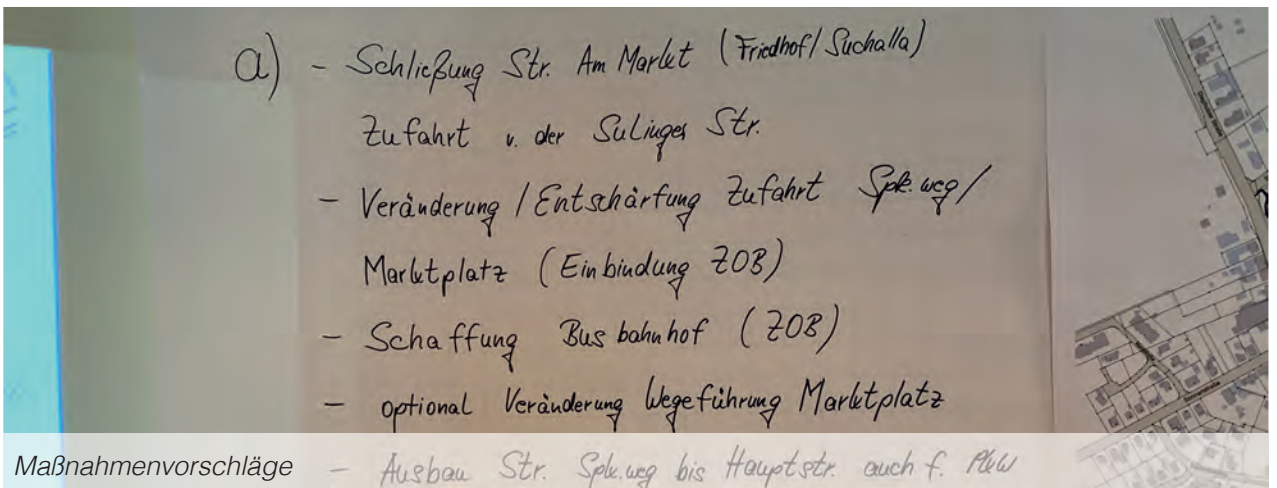 a) - Schließung Str. Am Markt (Friedhof/Suchalla)
Zufahrt v. der Sulinger Str.
- Veränderung / Entschärfung Zufahrt Spk.weg/
Marktplatz (Einbindung ZOB)
- Schaffung Busbahnhof (ZOB)
- optional Veränderung Wegeführung Marktplatz
- Ausbau Str. Spk.weg bis Hauptstr. auch f. PKW
Maßnahmenvorschläge